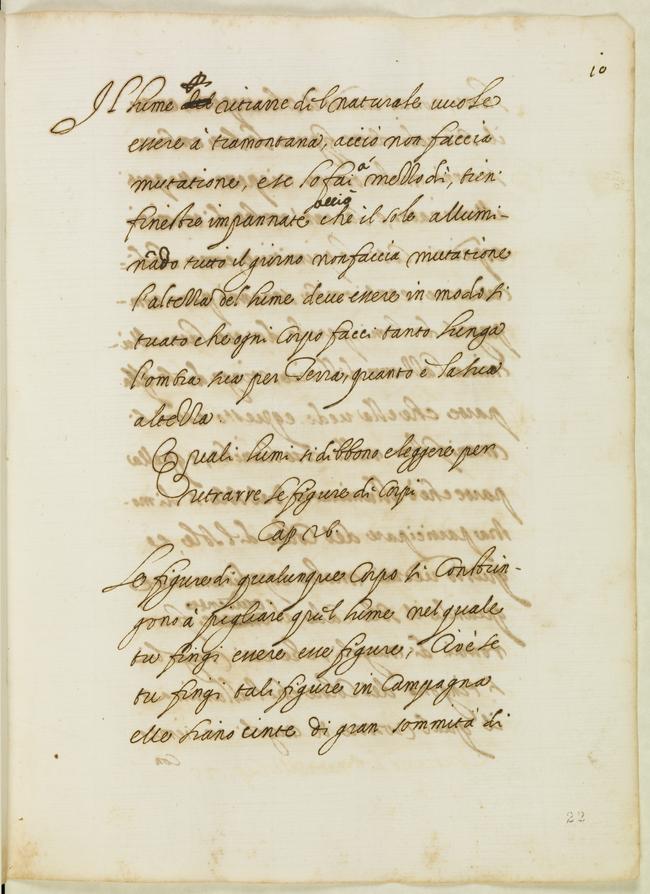 10
Il lume del ritrarre di/l naturale vuole
essere à tramontana, acciò non faccia
mutatione, e se lo fai à mezzo dì, tien
finestre impannate acciò che il sole allumi-
nãdo tutto il giorno non faccia mutatione
l'altezza del lume deve essere in modo si
tuato che ogni Corpo facci tanto lunga
l'ombra sua per Terra, quanto è la sua
altezza
Quali lumi si debbono eleggere per
ritrarre le figure di Corpi
Cap 26.
Le figure di qualunque Corpo si Constrin-
gono à pigliare quel lume nel quale
tu fingi essere esse figure, Cioè se
tu fingi tali figure in Campagna
elle siano cinte di gran sommità di
22